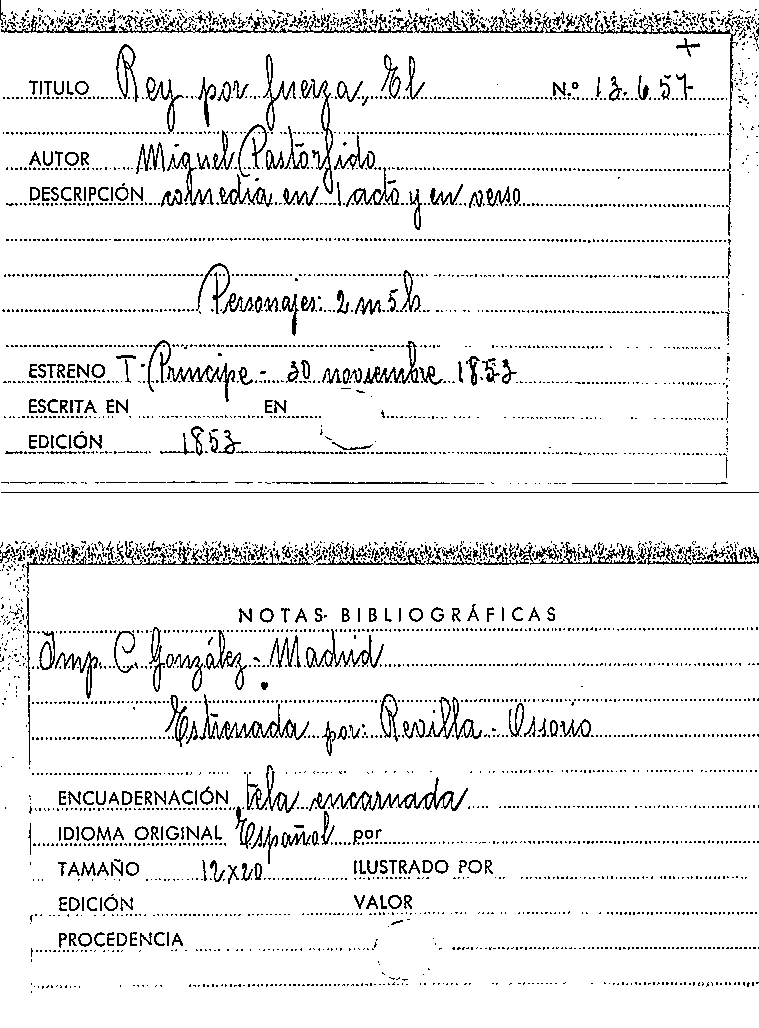 +
TITULO Rey por fuerza, El N.º 13.657
AUTOR Miguel Pastorfido
DESCRIPCIÓN comedia en 1 acto y en verso
Personajes: 2 m 5 h
ESTRENO T. Principe - 30 noviembre 1853
ESCRITA EN EN
EDICIÓN 1853
NOTAS BIBLIOGRÁFICAS
Imp. C. González - Madrid
Estrenada por: Revilla - Ossorio
ENCUADERNACIÓN tela encarnada
IDIOMA ORIGINAL Español por
TAMAÑO 12x20 ILUSTRADO POR
EDICIÓN VALOR
PROCEDENCIA